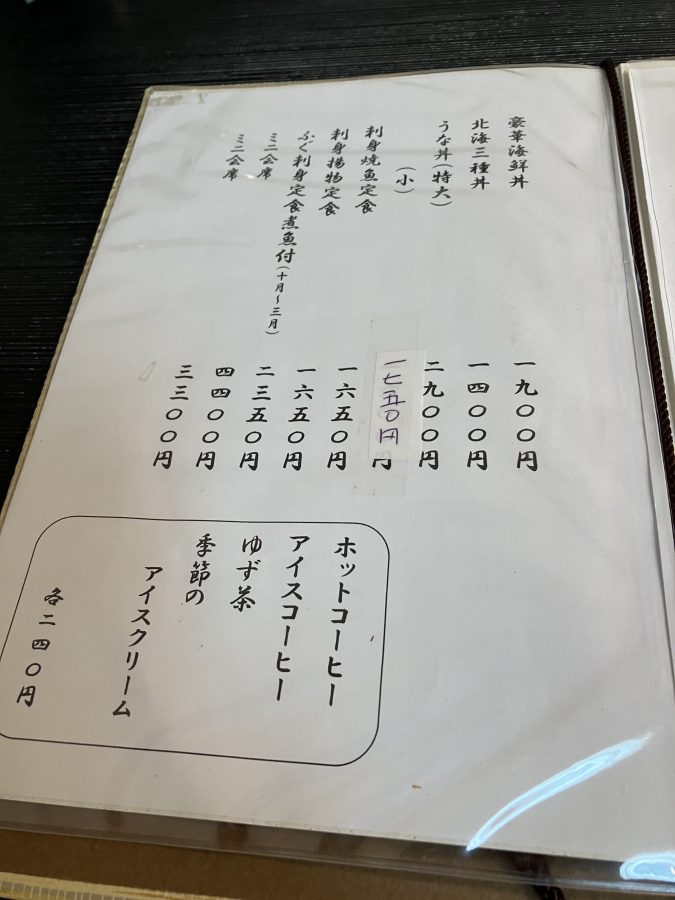 豪華海鮮丼　一九〇〇円
北海三種丼　一四〇〇円
うな丼（特大）　二九〇〇円
（小）　一七五〇円
刺身焼魚定食　一六五〇円
刺身揚物定食　一六五〇円
ふぐ刺身定食煮魚付（十月〜三月）　二三五〇円
ミニ会席　四四〇〇円
ミニ会席　三三〇〇円
ホットコーヒー
アイスコーヒー
ゆず茶
季節の
アイスクリーム
各二四〇円